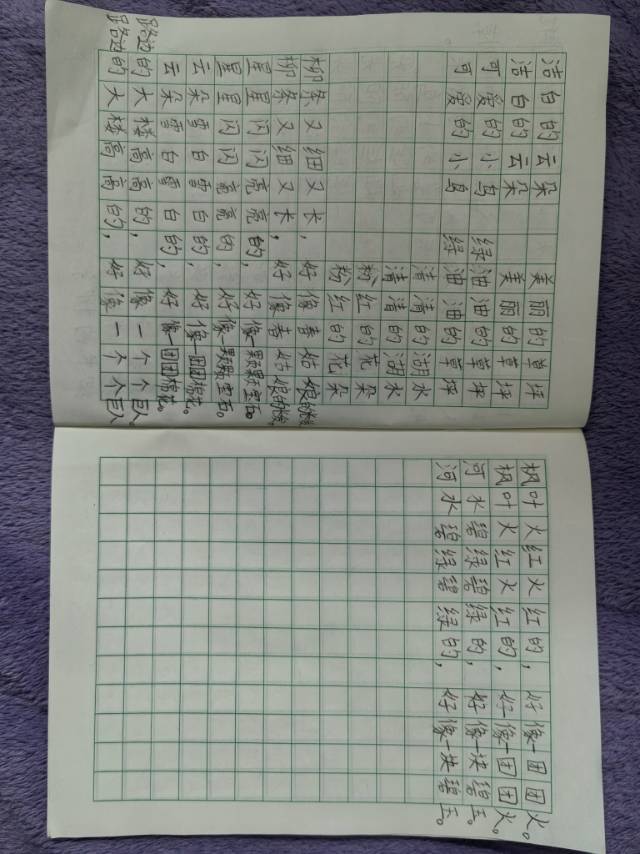 洁白的云朵 美丽的草坪
洁白的云朵 美丽的草坪
可爱的小鸟 绿油油的草坪
可爱的小鸟 绿油油的草坪
清清的湖水
清清的湖水
粉红的花朵
粉红的花朵
柳条又细又长,好像春姑娘的
柳条又细又长,好像春姑娘的
星星闪闪亮亮的,好像一颗颗宝石
星星闪闪亮亮的,好像一颗颗宝石。
云朵雪白雪白的,好像一团团棉花。
云朵雪白雪白的,好像一团团棉花。
路边的大楼高高的,好像一个个巨人
路边的大楼高高的,好像一个个巨人
枫叶火红火红的,好像一团团火。
枫叶火红火红的,好像一团团火。
河水碧绿碧绿的,好像一块碧玉。
河水碧绿碧绿的,好像一块碧玉。